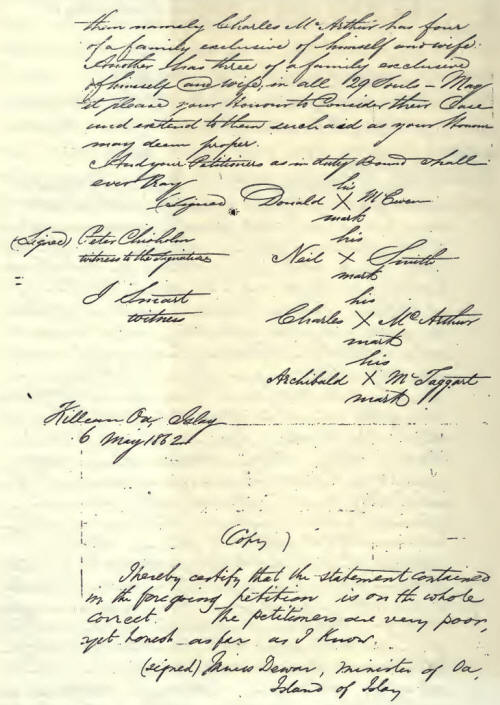 them namely Charles McArthur has four
of a family exclusive of himself and wife.
Another has three of a family exclusive
of himself and wife, in all 29 Souls - May
it please your Honours to Consider their Case
and extend to them such aid as your Honours
may deem proper.
And your Petitioners as in duty Bound shall
ever Pray
his
(Signed) Donald X McEwen
mark
(Signed) Peter Chisholm
witness to the signatures
his
Neil X Smith
mark
J Smart
witness
his
Charles X McArthur
mark
his
Archibald X McTaggart
mark
Killean Oa, Islay
6 May 1862
(Copy)
I hereby certify that the statement contained
in the foregoing petition is on the whole
correct. The petitioners are very poor,
yet honest as far as I know.
(signed) James Dewar, minister of Oa,
Island of Islay